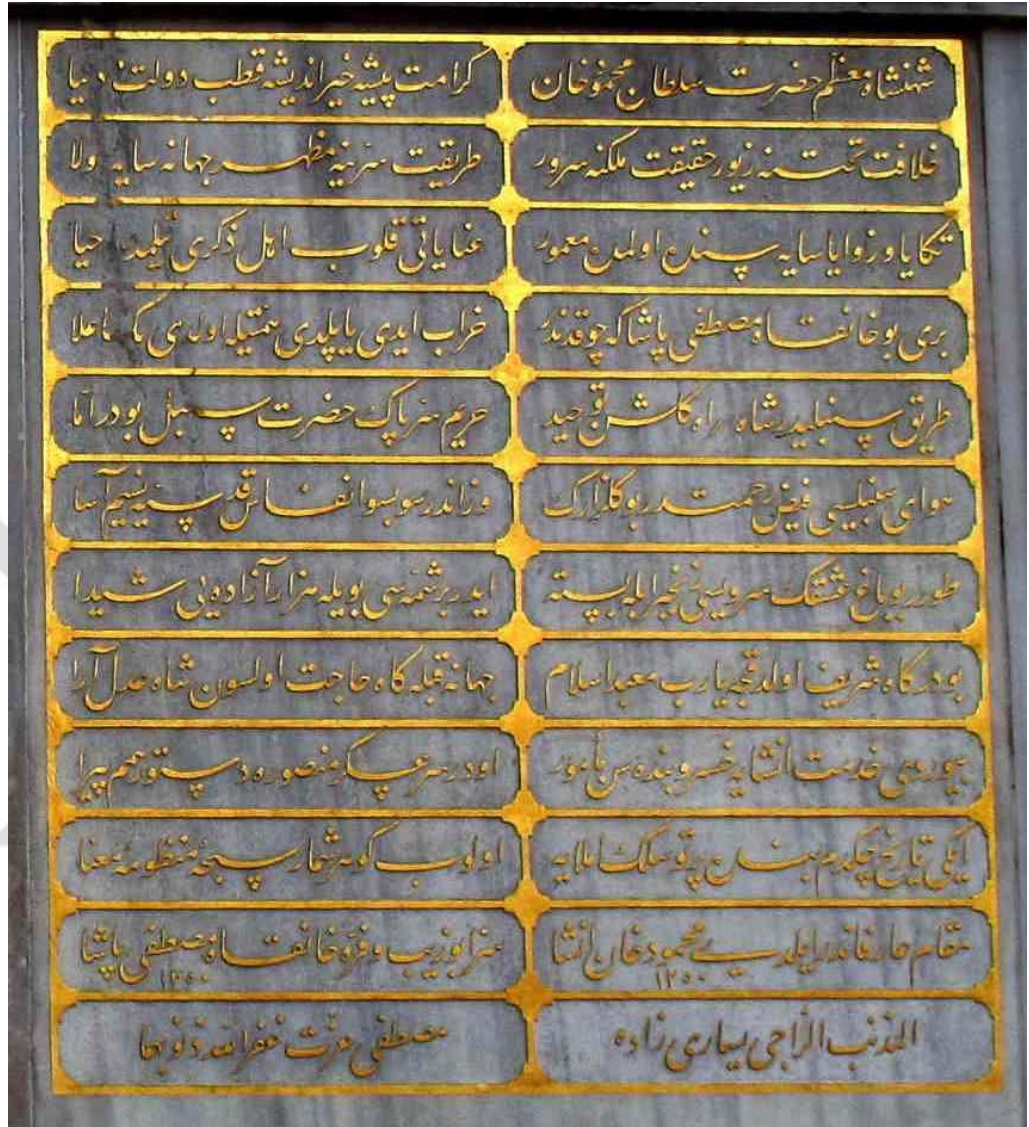 شهنشاه معظم حضرت سلطان محمود خان کرامت پیشه خیر اندیشه قطب دولت دنیا
خلافت تختنه زیور حقیقت ملکنه سرور طریقت سرینه مظهر جهانه سایه ولا
تکایا و زوایا سایه سنده اولمده معمور عنایاتی قلوب اهل ذکری ایلمده احیا
بری بو خانقاه مصطفی پاشا که چوقدندر خراب ایدی یاپلدی همتیله اولدی اعلا
طریق سنبلیدر شاه راه گلشن توحید حریم سر پاک حضرت سنبل بودر اما
هوای سنبلیسی فیض رحمتدر بو گلزارک وزاندر سوبسو انفاس قدسیه نسیم آسا
طورر بو باغ عشقک سرویسی زنجیر ایله بسته ایدر بر شمه سی بویله هزار آزاده یی شیدا
بو درگاه شریف اولدقجه یا رب معبد اسلام جهانه قبله گاه حاجت اولسون شاه عدل آرا
بیوردی خدمت انشایه خسرو بنده سن مأمور اودر سرعسکر منصوره دستور همم پیرا
ایکی تاریخ چکدم بنده پرتو سلک املایه اولوب گوهر شمار سبحۀ منظومۀ معنا
مقام عارفاندر ایلدی محمود خان انشا ١٢٥٠ هنرا بو زیب و فره خانقاه مصطفی پاشا ١٢٥٠
المذنب الراجی یساری زاده مصطفی عزت غفر الله ذنوبهما